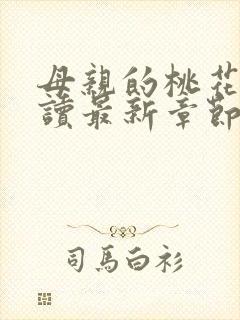 母親的桃花
讀最新章節
司馬白衫